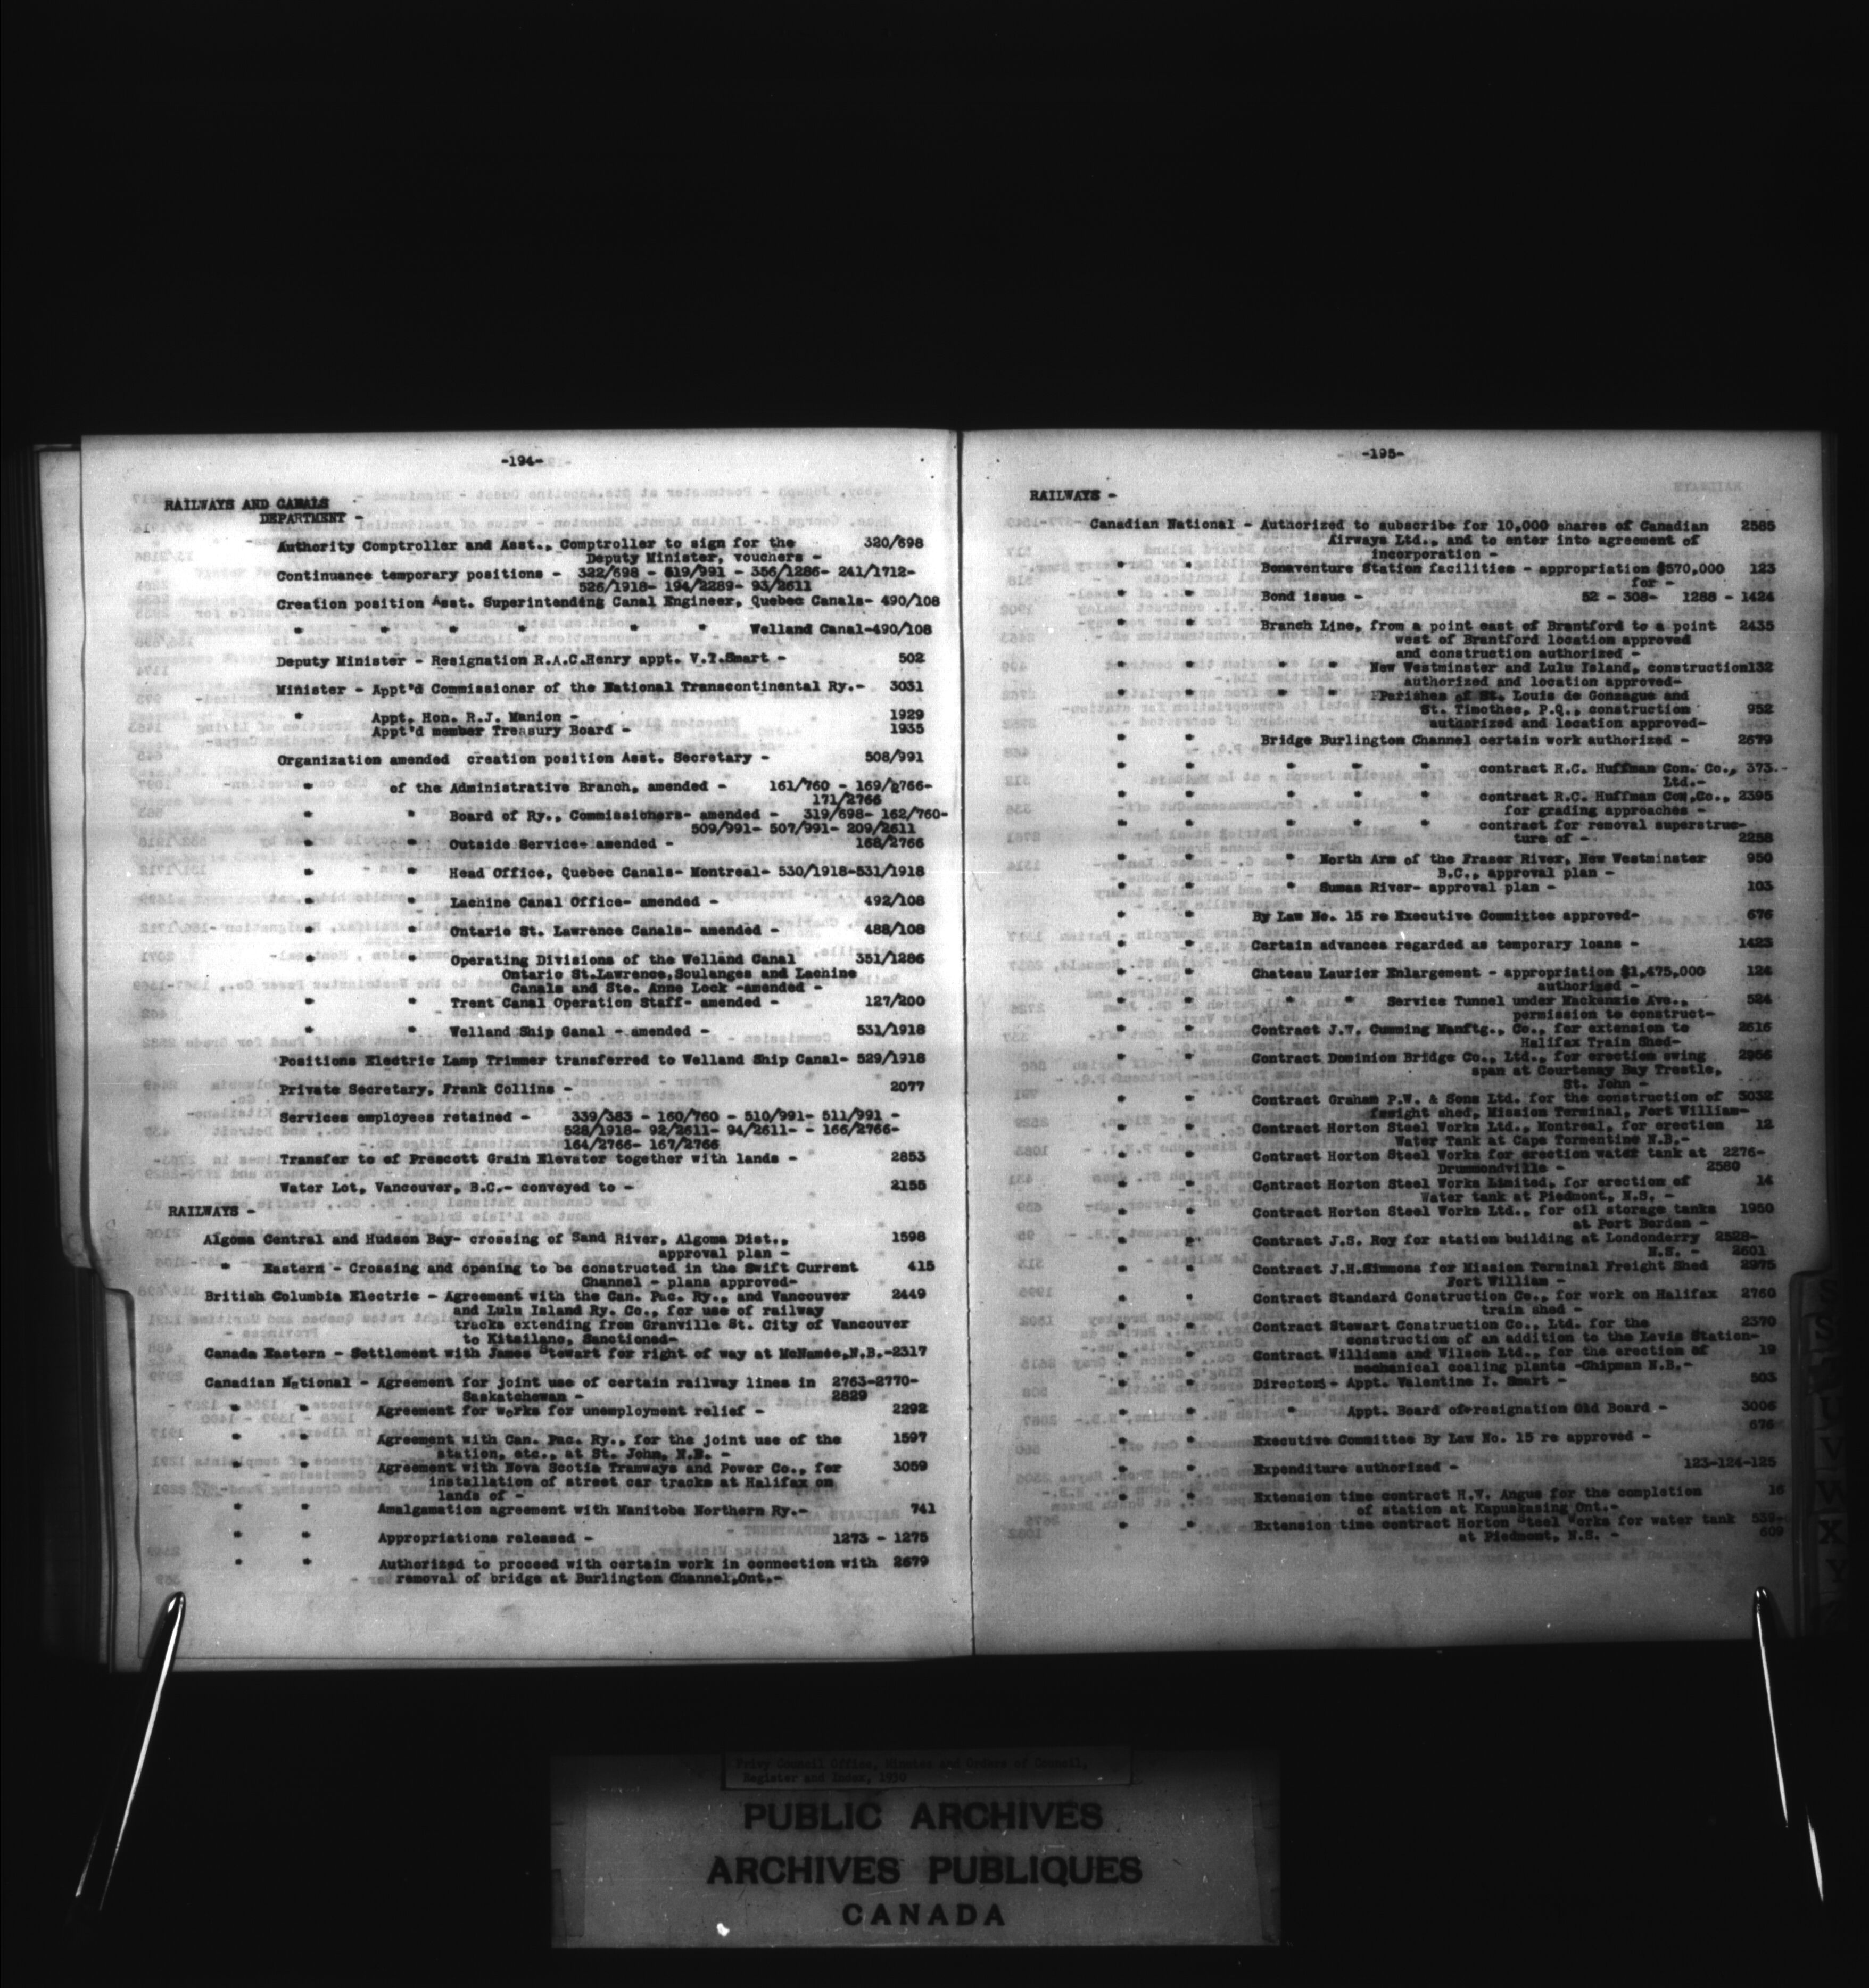 -194-
RAILWAYS AND CANALS
DEPARTMENT -
Authority Comptroller and Asst., Comptroller to sign for the 320/698
Deputy Minister, vouchers -
Continuance temporary positions - 322/698 - 819/991 - 356/1286- 241/1712-
526/1918- 194/2289- 93/2611
Creation position Asst. Superintending Canal Engineer, Quebec Canals- 490/108
" " " " " " Welland Canal-490/108
Deputy Minister - Resignation R.A.C.Henry appt. V.I.Smart - 502
Minister - Appt'd Commissioner of the National Transcontinental Ry.- 3031
" Appt. Hon. R.J. Manion - 1929
Appt'd member Treasury Board - 1935
Organization amended creation position Asst. Secretary - 508/991
" of the Administrative Branch, amended - 161/760 - 169/2766-
171/2766
" " Board of Ry., Commissioners- amended - 319/698- 162/760-
509/991- 507/991- 209/2611
" " Outside Service- amended - 168/2766
" " Head Office, Quebec Canals- Montreal- 530/1918-531/1918
" " Lachine Canal Office- amended - 492/108
" " Ontario St. Lawrence Canals- amended - 488/108
" " Operating Divisions of the Welland Canal 351/1286
Ontario St.Lawrence,Soulanges and Lachine
Canals and Ste. Anne Lock -amended -
" " Trent Canal Operation Staff- amended - 127/200
" " Welland Ship Canal - amended - 531/1918
Positions Electric Lamp Trimmer transferred to Welland Ship Canal- 529/1918
Private Secretary, Frank Collins - 2077
Services employees retained - 339/383 - 160/760 - 510/991- 511/991 -
528/1918- 92/2611- 94/2611- - 166/2766-
164/2766- 167/2766
Transfer to of Prescott Grain Elevator together with lands - 2853
Water Lot, Vancouver, B.C.- conveyed to - 2155
RAILWAYS -
Algoma Central and Hudson Bay- crossing of Sand River, Algoma Dist., 1598
approval plan -
" Eastern - Crossing and opening to be constructed in the Swift Current 415
Channel - plans approved-
British Columbia Electric - Agreement with the Can. Pac. Ry., and Vancouver 2449
and Lulu Island Ry. Co., for use of railway
tracks extending from Granville St. City of Vancouver
to Kitsilano, Sanctioned-
Canada Eastern - Settlement with James Stewart for right of way at McNamee,N.B.-2317
Canadian National - Agreement for joint use of certain railway lines in 2763-2770-
Saskatchewan - 2829
" " Agreement for works for unemployment relief - 2292
" " Agreement with Can. Pac. Ry., for the joint use of the 1597
station, etc., at St. John, N.B. -
" " Agreement with Nova Scotia Tramways and Power Co., for 3059
installation of street car tracks at Halifax on
lands of -
" " Amalgamation agreement with Manitoba Northern Ry.- 741
" " Appropriations released - 1273 - 1275
" " Authorized to proceed with certain work in connection with 2679
removal of bridge at Burlington Channel,Ont.-
-195-
RAILWAYS -
Canadian National - Authorized to subscribe for 10,000 shares of Canadian 2585
Airways Ltd., and to enter into agreement of
incorporation -
" " Bonaventure Station facilities - appropriation $570,000 123
for -
" " Bond issue - 52 - 308- 1288 - 1424
" " Branch Line, from a point east of Brantford to a point 2435
west of Brantford location approved
and construction authorized -
" " " " New Westminster and Lulu Island, construction132
authorized and location approved-
" " " " Parishes of St. Louis de Gonzague and
St. Timothee, P.Q., construction 952
authorized and location approved-
" " Bridge Burlington Channel certain work authorized - 2679
" " " " " contract R.C. Huffman Con. Co., 373.-
Ltd.-
" " " " " contract R.C. Huffman Con,Co., 2395
for grading approaches -
" " " " " contract for removal superstruc-
ture of - 2258
" " " North Arm of the Fraser River, New Westminster 950
B.C., approval plan -
" " " Sumas River- approval plan - 103
" " By Law No. 15 re Executive Committee approved- 676
" " Certain advances regarded as temporary loans - 1423
" " Chateau Laurier Enlargement - appropriation $1,475,000 124
authorized -
" " " " Service Tunnel under Mackenzie Ave., 524
permission to construct-
" " Contract J.W. Cumming Manftg., Co., for extension to 2616
Halifax Train Shed-
" " Contract Dominion Bridge Co., Ltd., for erection swing 2966
span at Courtenay Bay Trestle,
St. John -
" " Contract Graham P.W. & Sons Ltd. for the construction of 3032
freight shed, Mission Terminal, Fort William-
" " Contract Horton Steel Works Ltd., Montreal, for erection 12
Water Tank at Cape Tormentine N.B.-
" " Contract Horton Steel Works for erection water tank at 2276-
Drummondville - 2580
" " Contract Horton Steel Works Limited, for erection of 14
Water tank at Piedmont, N.S. -
" " Contract Horton Steel Works Ltd., for oil storage tanks 1950
at Port Borden -
" " Contract J.S. Roy for station building at Londonderry 2528-
N.S. - 2601
" " Contract J.H.Simmons for Mission Terminal Freight Shed 2975
Fort William -
" " Contract Standard Construction Co., for work on Halifax 2760
train shed -
" " Contract Stewart Construction Co., Ltd. for the 2370
construction of an addition to the Levis Station-
" " Contract Williams and Wilson Ltd., for the erection of 19
mechanical coaling plants -Chipman N.B.-
" " Director- Appt. Valentine I. Smart - 503
" " " Appt. Board of-resignation Old Board - 3006
" " Executive Committee By Law No. 15 re approved - 676
" " Expenditure authorized - 123-124-125
" " Extension time contract H.W. Angus for the completion 16
of station at Kapuskasing Ont.-
" " Extension time contract Horton Steel Works for water tank 539-
at Piedmont, N.S. - 609
Privy Council Office, Minutes and Orders of Council,
Register and Index, 1930
PUBLIC ARCHIVES
ARCHIVES PUBLIQUES
CANADA
S
T
U
V
W
X
Y